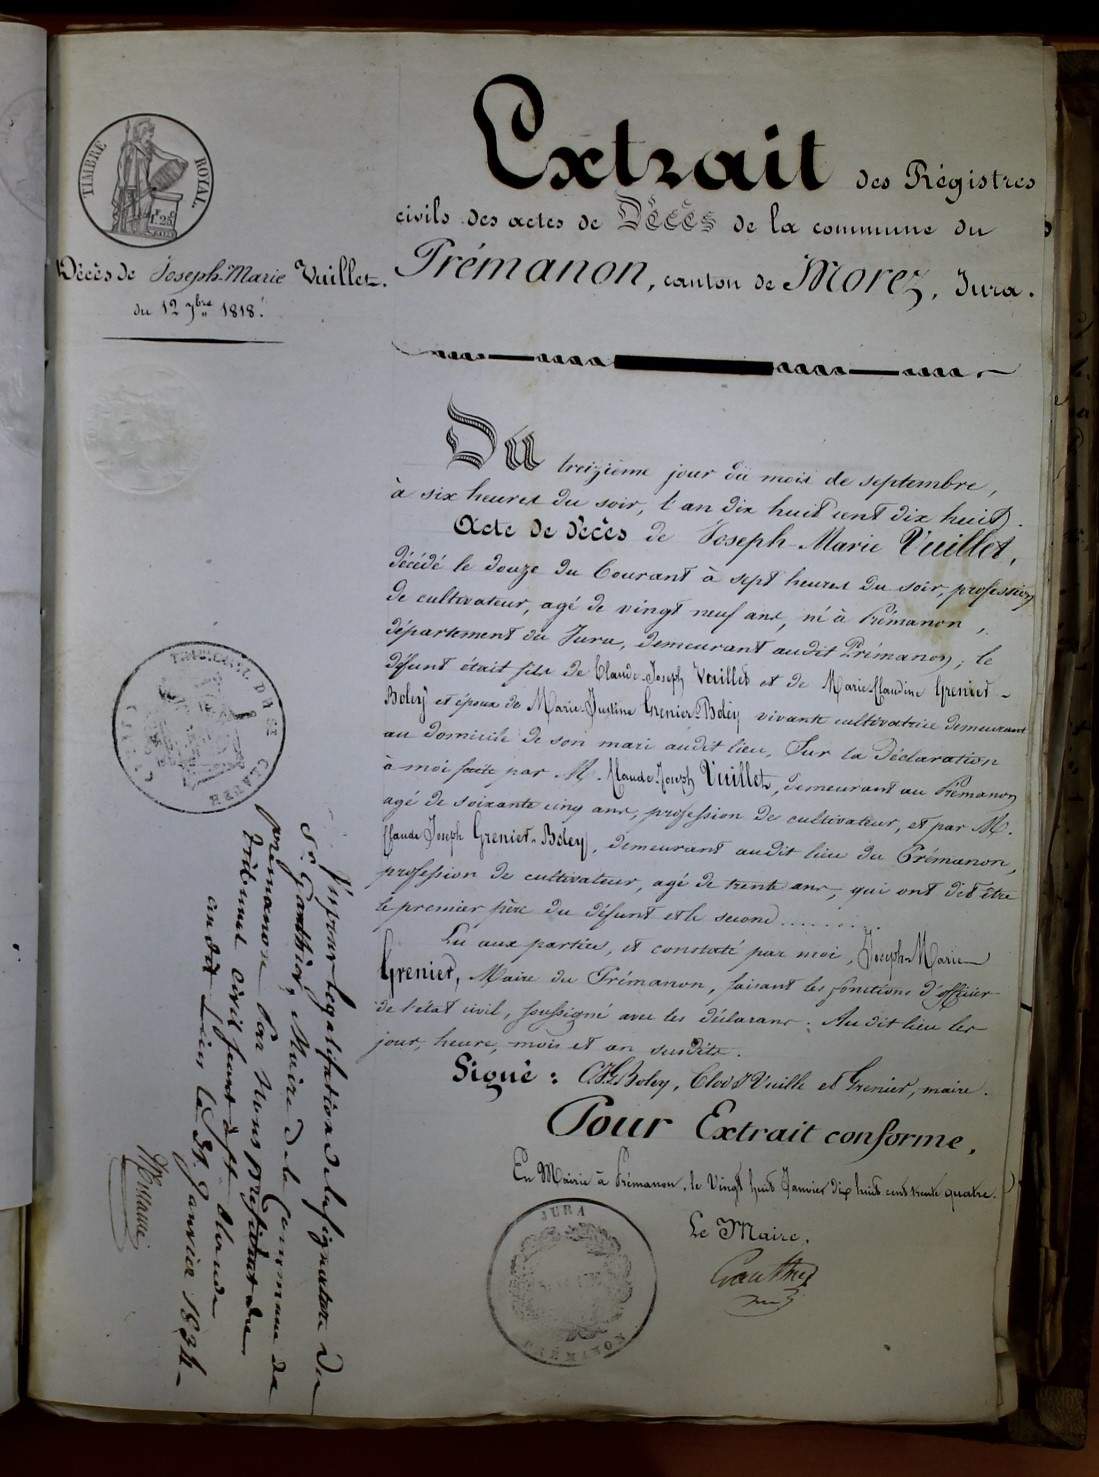 TIMBRE ROYAL
1f 25c
Décès de Joseph-Marie Vuillet.
du 12 7bre 1818.
Extrait des Régistres
civils des actes de Décès de la commune du
Prémanon, canton de Morez, Jura.
Du treizième jour du mois de septembre,
à six heures du soir, l'an dix huit cent dix huit.
Acte de décès de Joseph-Marie Vuillet,
décédé le douze du Courant à sept heures du soir, profession
de cultivateur, agé de vingt neuf ans, né à Prémanon,
département du Jura, demeurant audit Prémanon; le
défunt était fils de Claude-Joseph Vuillet et de Marie-Claudine Grenier-
Boley et époux de Marie-Justine Grenier-Boley vivante cultivatrice demeurant
au domicile de son mari audit lieu, Sur la Déclaration
à moi faite par M. Claude-Joseph Vuillet, demeurant au Prémanon
agé de soixante cinq ans, profession de cultivateur, et par M.
Claude Joseph Grenier-Boley, demeurant audit lieu du Prémanon,
profession de cultivateur, agé de trente ans, qui ont dit être
le premier père du défunt et le second .........
Lu aux parties, et constaté par moi, Joseph-Marie
Grenier, Maire du Prémanon, faisant les fonctions d'officier
de l'état civil, soussigné avec les déclarans. Au dit lieu les
jour, heure, mois et an susdits.
Signé : Boley, Clod J Vuille et Grenier, maire.
Pour Extrait conforme,
En Mairie à Prémanon, le Vingt huit Janvier dix huit cent trente quatre.
Le Maire,
Gauthier
JURA
PRÉMANON
TRIBUNAL DE ST CLAUDE
Vu pour légalisation de la signature du
Sr. Gauthier, Maire de la Commune de
prémanon par Nous président du
tribunal civil séant à St. Claude
au dit Lieu le 31 Janvier 1834